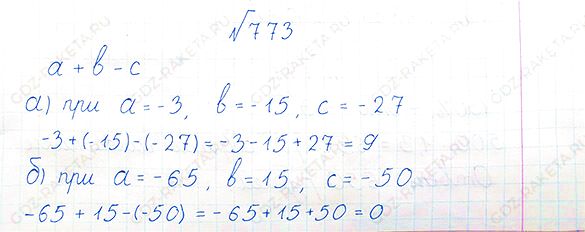 √773
a + b - c
а) при a = -3, b = -15, c = -27
-3+(-15)-(-27) = -3-15+27 = 9
б) при a = -65, b = 15, c = -50
-65 + 15-(-50) = -65+15+50 = 0